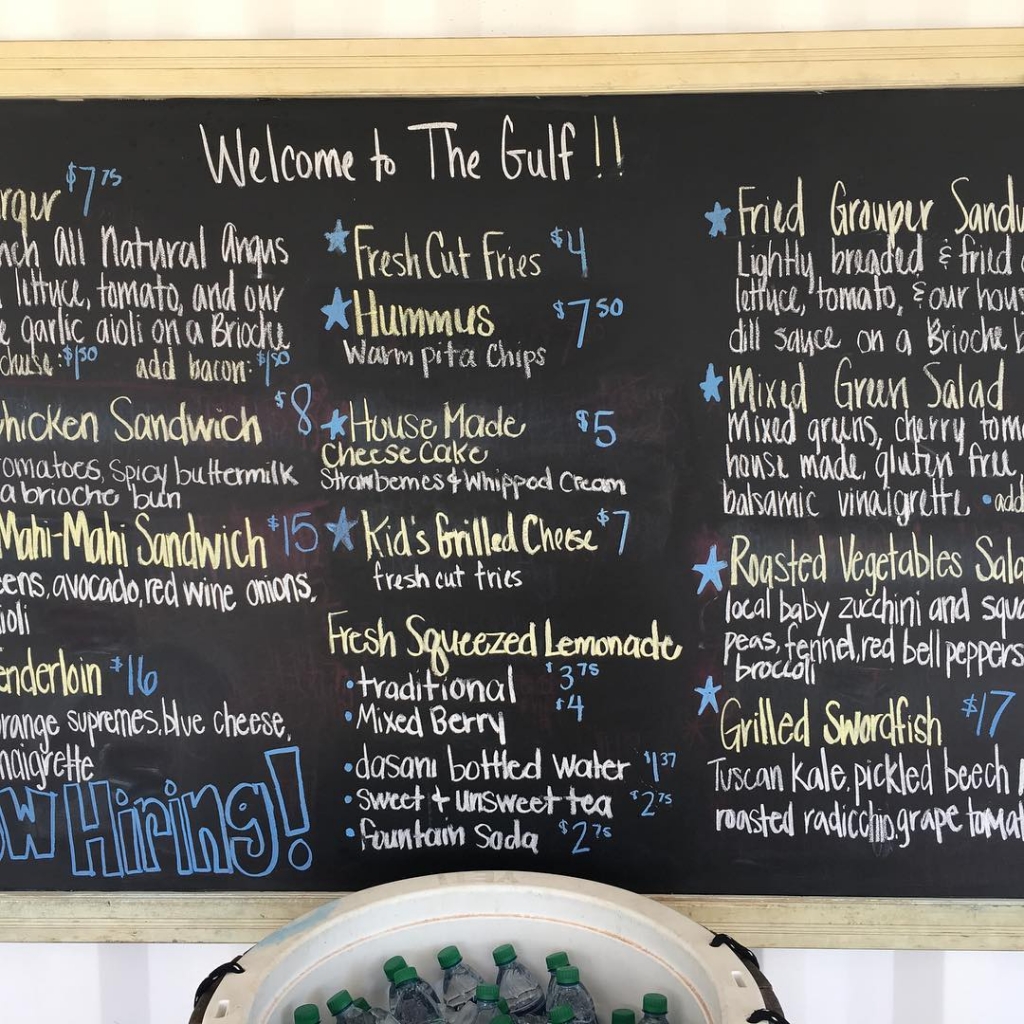 Welcome to The Gulf !!
$7.75
nch All Natural Angus
lettuce, tomato, and our
garlic aioli on a Brioche
$1.50 add bacon: $1.50
Chicken Sandwich $8
tomatoes, spicy buttermilk
a brioche bun
Mahi-Mahi Sandwich $15
eens, avocado, red wine onions,
ioli
enderloin $16
orange supremes, blue cheese,
naigrette
ow Hiring!
Fresh Cut Fries $4
Hummus $7.50
Warm pita Chips
House Made $5
Cheesecake
Strawberries & Whipped Cream
Kid's Grilled Cheese $7
fresh cut fries
Fresh Squeezed Lemonade
• traditional $3.75
• Mixed Berry $4
• dasani bottled water $1.37
• sweet + unsweet tea $2.75
• fountain soda $2.75
Fried Grouper Sandw
Lightly breaded & fried
lettuce, tomato, & our hous
dill sauce on a Brioche b
Mixed Green Salad
Mixed greens, cherry toma
house made, gluten free,
balsamic vinaigrette • add
Roasted Vegetables Sala
local baby zucchini and squa
peas, fennel, red bell peppers
broccoli
Grilled Swordfish $17
Tuscan Kale, pickled beech
roasted radicchio, grape tomat